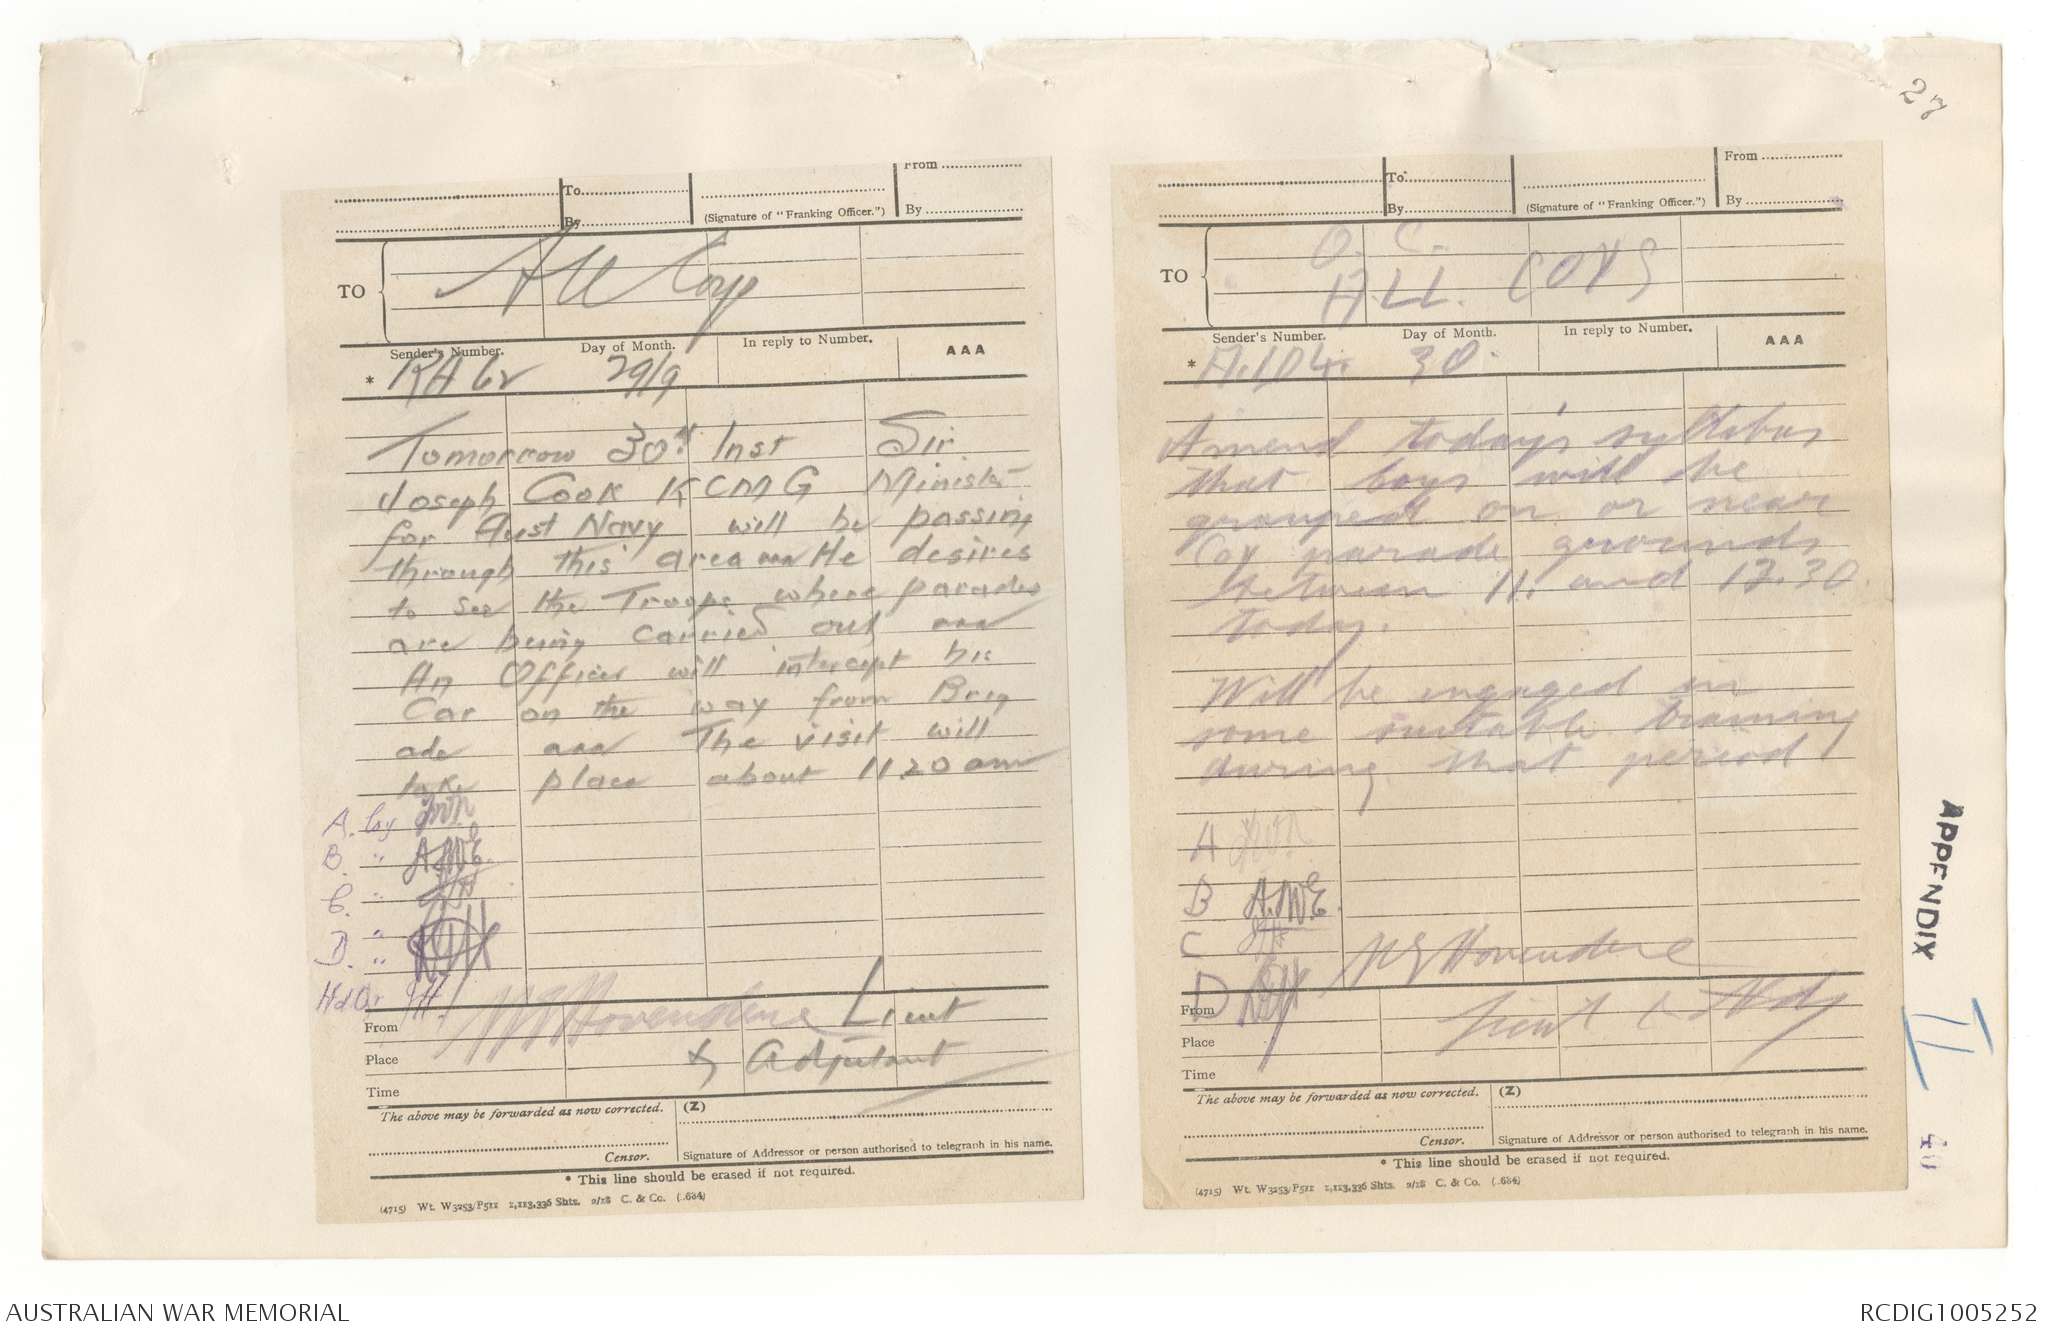 27
From
To
By
(Signature of "Franking Officer.")
By
TO
All Coys
Sender's Number.
Day of Month.
In reply to Number.
AAA
* RA 62 29/9
Tomorrow 30th Inst Sir
Joseph Cook KCMG Minister
for Aust Navy will be passing
through this area aaa He desires
to see the Troops where parades
are being carried out aaa
An Officer will intercept his
Car on the way from Brig
ade aaa The visit will
take place about 11.20 am
A. Coy
B. " A.W.E.
C. "
D. "
HdQr
From
Hovendene Lieut
Place
& Adjutant
Time
The above may be forwarded as now corrected.
(Z)
Censor.
Signature of Addressor or person authorised to telegraph in his name.
* This line should be erased if not required.
(4715) Wt. W3253/P511 1,113,336 Shts. 2/18 C. & Co. (.684)
From
To
By
(Signature of "Franking Officer.")
By
TO
O. C.
ALL. COYS
Sender's Number.
Day of Month.
In reply to Number.
AAA
* A.104. 30.
Amend today's syllabus
that boys will be
grouped on or near
Coy parade grounds
between 11. and 12.30.
today.
Will be engaged in
some suitable training
during that period
A
B A.W.E.
C
Hovendene
D
From
Lieut & Adj
Place
Time
The above may be forwarded as now corrected.
(Z)
Censor.
Signature of Addressor or person authorised to telegraph in his name.
* This line should be erased if not required.
(4715) Wt. W3253/P511 1,113,336 Shts. 2/18 C. & Co. (.684)
APPENDIX
II
AUSTRALIAN WAR MEMORIAL
RCDIG1005252